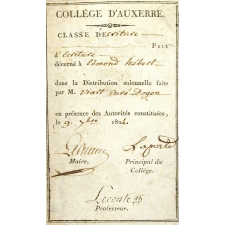 COLLÉGE D'AUXERRE.
CLASSE D'Écriture
PRIX
d'Ecriture
décerné à Edmond hébert
dans la Distribution solennelle faite
par M. Viart Curé Doyen
en présence des Autorités constituées,
le 9. 7bre 1824.
Maire.
Laporte
Principal du
Collége.
Lecomte
Professeur.